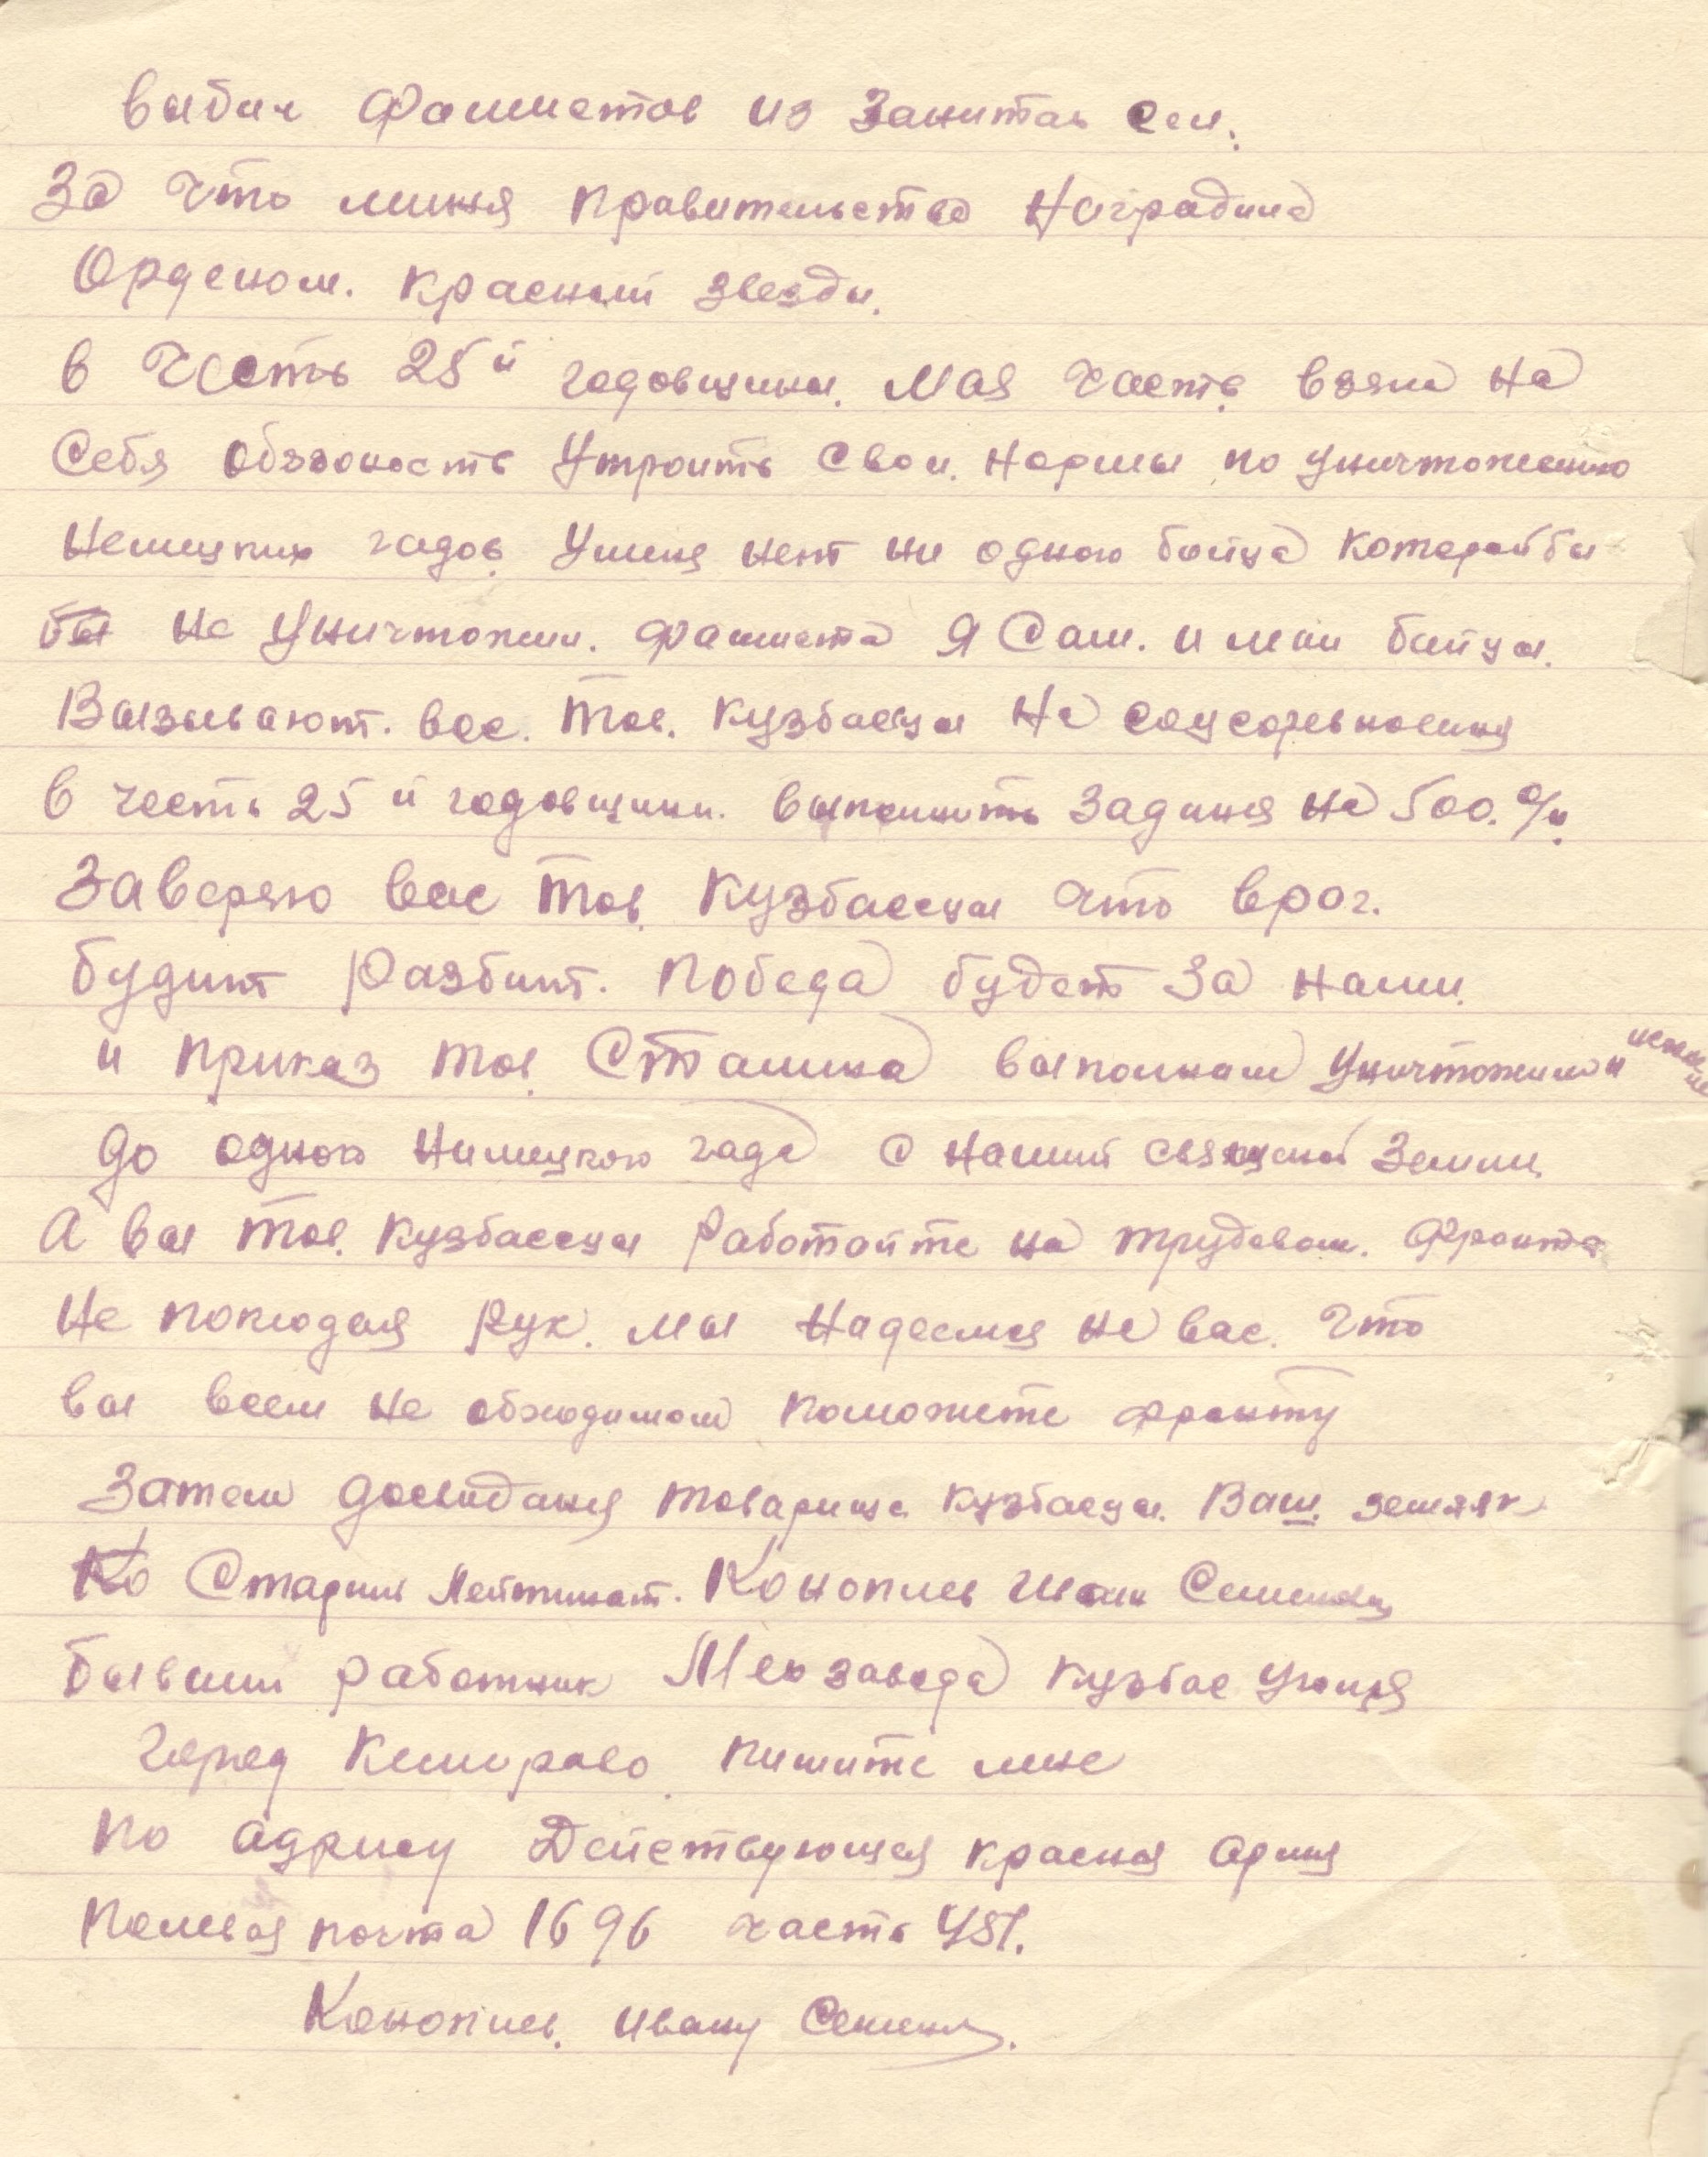 выбил Фашистов из Занитах сел.
За что миня правительства Наградила
Орденом. Красный Звезды.
в Честь 25й годовщины. Мая часть взяла на
Себя обязоность Утроить свои. нормы по уничтожению
Немецких гадов. Уминя нет ни одного бойца которойбы
бы не Уничтожил. фашиста Я Сам. и мои бойцы.
Вызывают. вас. Тов. Кузбасцы На соцсоревнования
в честь 25й годовщины. выполнить Задиния на 500.%.
Заверяю вас Тов. Кузбассцы что враг.
будит Разбит. Победа будет За нами.
и приказ тов. Сталина выполним Уничтожим и
до одного Нимецкого гада с нашей священой Земли.
А вы Тов. Кузбассцы Работайте на трудовом. Фронта
Не покладая Рук. мы Надеемся на вас. Что
вы всем не обходимом поможите фронту
Затем досвидания товарищи Кузбасцы. Ваш. земляк
Ко Старший Лейтинат. Коноплев Иван
бывший работник Мехзавода Кузбас Уголя
Город Кемерово. пишите мне
по адрису Действующая красная армия
Полевая почта 1696 часть 451.
Коноплев. Ивану